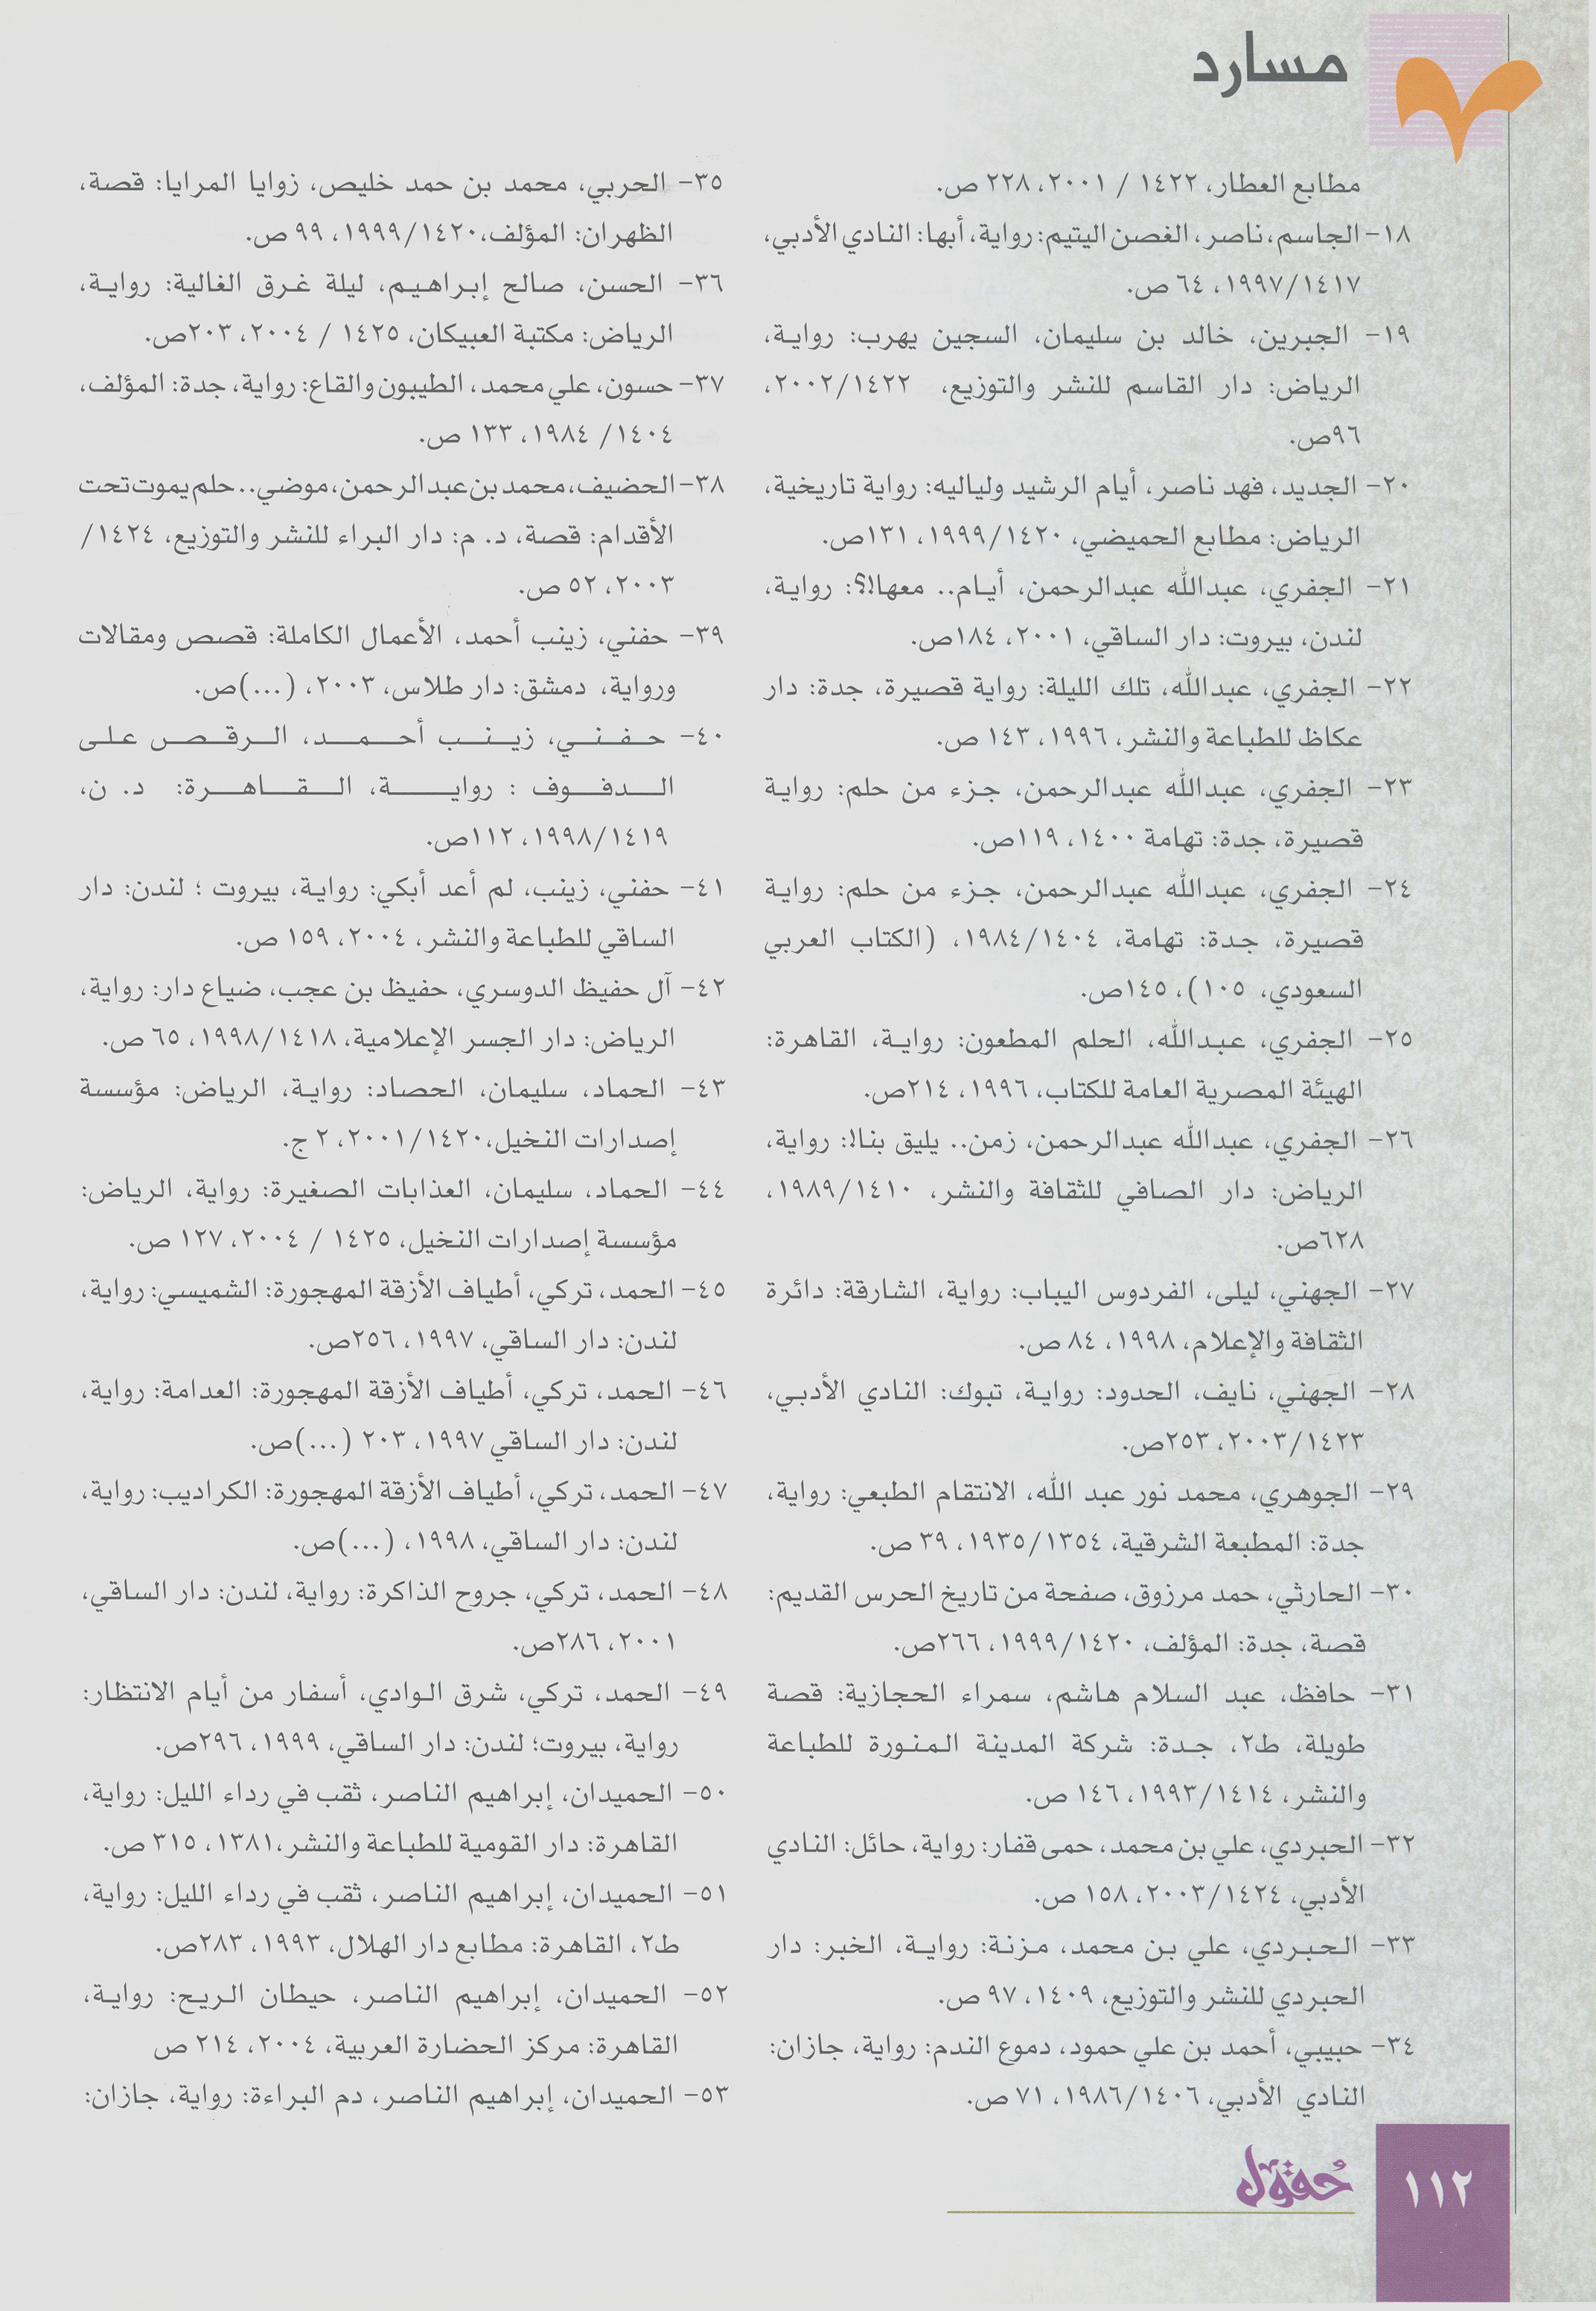 مسارد
مطابع العطار، ١٤٢٢ / ٢٠٠١، ٢٢٨ ص.
١٨- الجاسم، ناصر، الغصن اليتيم: رواية، أبها: النادي الأدبي،
١٩٩٧/١٤١٧، ٦٤ ص.
١٩- الجبرين، خالد بن سليمان، السجين يهرب: رواية،
الرياض: دار القاسم للنشر والتوزيع، ٢٠٠٢/١٤٢٢،
٩٦ص.
٢٠- الجديد، فهد ناصر، أيام الرشيد ولياليه: رواية تاريخية،
الرياض: مطابع الحميضي، ١٩٩٩/١٤٢٠، ١٣١ص.
٢١- الجفري، عبدالله عبدالرحمن، أيام.. معها!؟: رواية،
لندن، بيروت: دار الساقي، ٢٠٠١، ١٨٤ص.
٢٢- الجفري، عبدالله، تلك الليلة: رواية قصيرة، جدة: دار
عكاظ للطباعة والنشر، ١٩٩٦، ١٤٣ ص.
٢٣- الجفري، عبدالله عبدالرحمن، جزء من حلم: رواية
قصيرة، جدة: تهامة ١٤٠٠، ١١٩ص.
٢٤- الجفري، عبدالله عبدالرحمن، جزء من حلم: رواية
قصيرة، جدة: تهامة، ١٩٨٤/١٤٠٤، (الكتاب العربي
السعودي، ١٠٥)، ١٤٥ص.
٢٥- الجفري، عبدالله، الحلم المطعون: رواية، القاهرة:
الهيئة المصرية العامة للكتاب، ١٩٩٦، ٢١٤ص.
٢٦- الجفري، عبدالله عبدالرحمن، زمن.. يليق بنا!: رواية،
الرياض: دار الصافي للثقافة والنشر، ١٩٨٩/١٤١٠،
٦٢٨ص.
٢٧- الجهني، ليلى، الفردوس اليباب: رواية، الشارقة: دائرة
الثقافة والإعلام، ١٩٩٨، ٨٤ ص.
٢٨- الجهني، نايف، الحدود: رواية، تبوك: النادي الأدبي،
٢٠٠٣/١٤٢٣، ٢٥٣ص.
٢٩- الجوهري، محمد نور عبد الله، الانتقام الطبعي: رواية،
جدة: المطبعة الشرقية، ١٩٣٥/١٣٥٤، ٣٩ ص.
٣٠- الحارثي، حمد مرزوق، صفحة من تاريخ الحرس القديم:
قصة، جدة: المؤلف، ١٩٩٩/١٤٢٠، ٢٦٦ص.
٣١- حافظ، عبد السلام هاشم، سمراء الحجازية: قصة
طويلة، ط٢، جدة: شركة المدينة المنورة للطباعة
والنشر، ١٩٩٣/١٤١٤، ١٤٦ ص.
٣٢- الحبردي، علي بن محمد، حمى قفار: رواية، حائل: النادي
الأدبي، ٢٠٠٣/١٤٢٤، ١٥٨ ص.
٣٣- الحبردي، علي بن محمد، مزنة: رواية، الخبر: دار
الحبردي للنشر والتوزيع، ١٤٠٩، ٩٧ ص.
٣٤- حبيبي، أحمد بن علي حمود، دموع الندم: رواية، جازان:
النادي الأدبي، ١٩٨٦/١٤٠٦، ٧١ ص.
٣٥- الحربي، محمد بن حمد خليص، زوايا المرايا: قصة،
الظهران: المؤلف، ١٩٩٩/١٤٢٠، ٩٩ ص.
٣٦- الحسن، صالح إبراهيم، ليلة غرق الغالية: رواية،
الرياض: مكتبة العبيكان، ١٤٢٥ / ٢٠٠٤، ٢٠٣ص.
٣٧- حسون، علي محمد، الطيبون والقاع: رواية، جدة: المؤلف،
١٤٠٤/ ١٩٨٤، ١٣٣ ص.
٣٨- الحضيف، محمد بن عبد الرحمن، موضي.. حلم يموت تحت
الأقدام: قصة، د. م: دار البراء للنشر والتوزيع، ١٤٢٤/
٢٠٠٣، ٥٢ ص.
٣٩- حفني، زينب أحمد، الأعمال الكاملة: قصص ومقالات
ورواية، دمشق: دار طلاس، ٢٠٠٣، (...)ص.
٤٠- حفني، زينب أحمد، الرقص على
الدفوف : رواية، القاهرة: د. ن،
١٩٩٨/١٤١٩، ١١٢ص.
٤١- حفني، زينب، لم أعد أبكي: رواية، بيروت ؛ لندن: دار
الساقي للطباعة والنشر، ٢٠٠٤، ١٥٩ ص.
٤٢- آل حفيظ الدوسري، حفيظ بن عجب، ضياع دار: رواية،
الرياض: دار الجسر الإعلامية، ١٩٩٨/١٤١٨، ٦٥ ص.
٤٣- الحماد، سليمان، الحصاد: رواية، الرياض: مؤسسة
إصدارات النخيل، ٢٠٠١/١٤٢٠، ٢ ج.
٤٤- الحماد، سليمان، العذابات الصغيرة: رواية، الرياض:
مؤسسة إصدارات النخيل، ١٤٢٥ / ٢٠٠٤، ١٢٧ ص.
٤٥- الحمد، تركي، أطياف الأزقة المهجورة: الشميسي: رواية،
لندن: دار الساقي، ١٩٩٧، ٢٥٦ص.
٤٦- الحمد، تركي، أطياف الأزقة المهجورة: العدامة: رواية،
لندن: دار الساقي ١٩٩٧، ٢٠٣ (...)ص.
٤٧- الحمد، تركي، أطياف الأزقة المهجورة: الكراديب: رواية،
لندن: دار الساقي، ١٩٩٨، (...)ص.
٤٨- الحمد، تركي، جروح الذاكرة: رواية، لندن: دار الساقي،
٢٠٠١، ٢٨٦ص.
٤٩- الحمد، تركي، شرق الوادي، أسفار من أيام الانتظار:
رواية، بيروت؛ لندن: دار الساقي، ١٩٩٩، ٢٩٦ص.
٥٠- الحميدان، إبراهيم الناصر، ثقب في رداء الليل: رواية،
القاهرة: دار القومية للطباعة والنشر، ١٣٨١، ٣١٥ ص.
٥١- الحميدان، إبراهيم الناصر، ثقب في رداء الليل: رواية،
ط٢، القاهرة: مطابع دار الهلال، ١٩٩٣، ٢٨٣ص.
٥٢- الحميدان، إبراهيم الناصر، حيطان الريح: رواية،
القاهرة: مركز الحضارة العربية، ٢٠٠٤، ٢١٤ ص
٥٣- الحميدان، إبراهيم الناصر، دم البراءة: رواية، جازان:
حُقول
١١٢